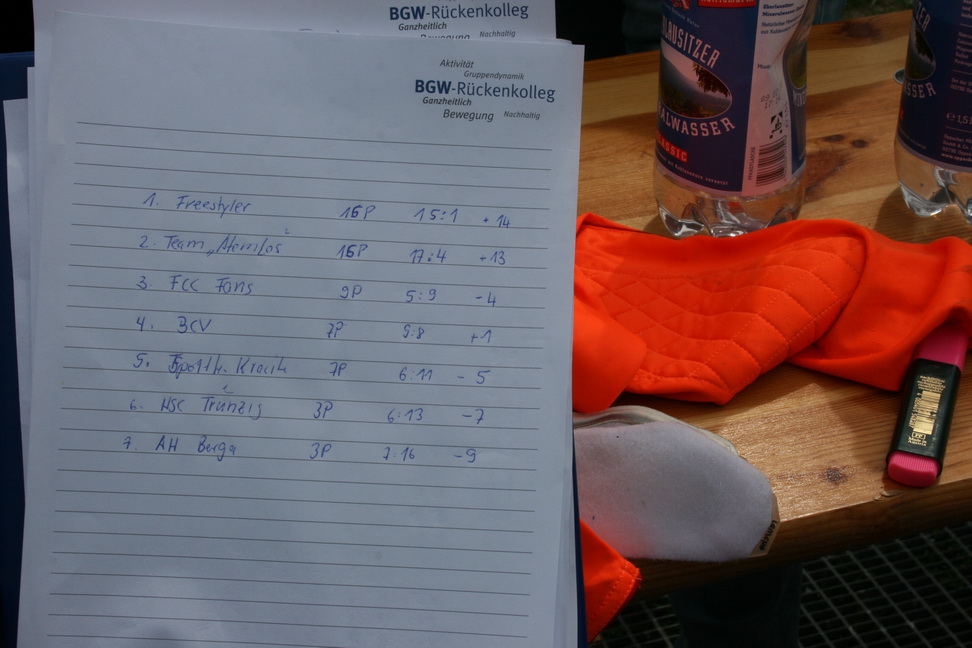 BGW-Rückenkolleg
Ganzheitlich
Bewegung Nachhaltig
Aktivität
Gruppendynamik
BGW-Rückenkolleg
Ganzheitlich
Bewegung Nachhaltig
1. Freestyler 16P 15:1 +14
2. Team "Atemlos" 16P 17:4 +13
3. FCC Fans 9P 5:9 -4
4. BCV 7P 9:8 +1
5. 7P 6:11 -5
6. HSC Trünzig 3P 6:13 -7
7. AH Berga 3P 7:16 -9
LAUSITZER
ALWASSER
LASSIC
ITZER
ASSER
1,5